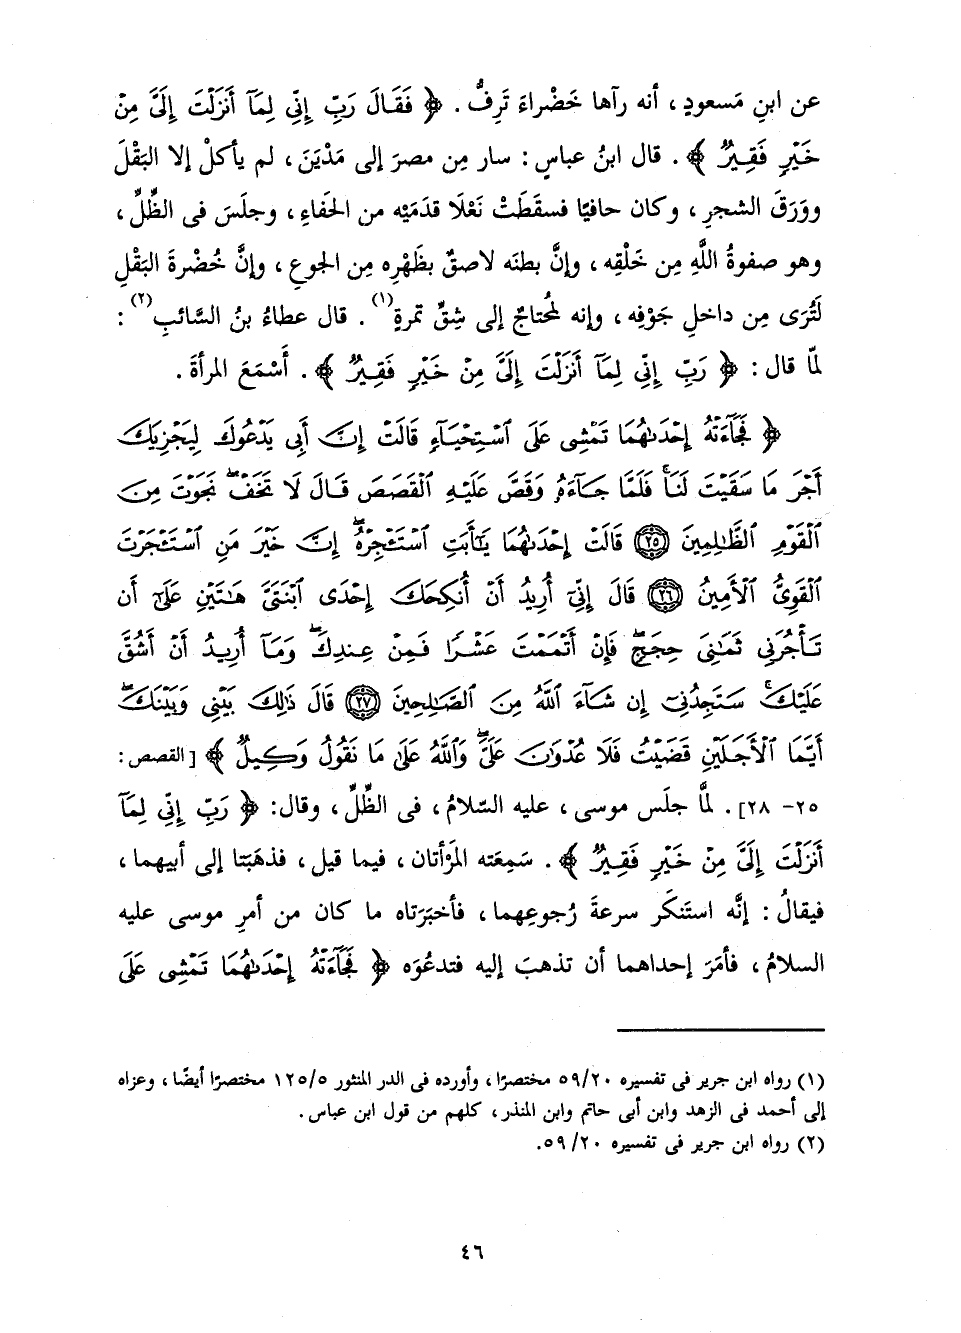 عن ابنِ مَسعودٍ ، أنه رآها خَضْراءَ تَرِفُّ . ﴿ فَقَالَ رَبِّ إِنِّي لِمَآ أَنزَلْتَ إِلَىَّ مِنْ
خَيْرٍ فَقِيرٌ ﴾ . قال ابنُ عباسٍ : سار مِن مصرَ إلى مَدْيَنَ ، لم يأكلْ إلا البَقْلَ
ووَرَقَ الشجرِ ، وكان حافيًا فسقَطَتْ نَعْلَا قدَمَيْه من الحَفاءِ ، وجلَسَ فى الظِّلِّ ،
وهو صفوةُ اللَّهِ مِن خَلْقِه ، وإنَّ بطنَه لاصقٌ بظَهْرِه مِن الجوعِ ، وإنَّ خُضْرةَ البَقْلِ
لَتُرَى مِن داخلِ جَوْفِه ، وإنه لمُحتاجٌ إلى شِقِّ تمرةٍ(١) . قال عطاءُ بنُ السَّائبِ(٢) :
لمّا قال : ﴿ رَبِّ إِنِّي لِمَآ أَنزَلْتَ إِلَىَّ مِنْ خَيْرٍ فَقِيرٌ ﴾ . أَسْمَعَ المرأةَ .
﴿ فَجَآءَتْهُ إِحْدَىٰهُمَا تَمْشِى عَلَى ٱسْتِحْيَآءٍ قَالَتْ إِنَّ أَبِى يَدْعُوكَ لِيَجْزِيَكَ
أَجْرَ مَا سَقَيْتَ لَنَاۚ فَلَمَّا جَآءَهُۥ وَقَصَّ عَلَيْهِ ٱلْقَصَصَ قَالَ لَا تَخَفْۖ نَجَوْتَ مِنَ
ٱلْقَوْمِ ٱلظَّٰلِمِينَ ٢٥ قَالَتْ إِحْدَىٰهُمَا يَٰٓأَبَتِ ٱسْتَـْٔجِرْهُۖ إِنَّ خَيْرَ مَنِ ٱسْتَـْٔجَرْتَ
ٱلْقَوِىُّ ٱلْأَمِينُ ٢٦ قَالَ إِنِّىٓ أُرِيدُ أَنْ أُنكِحَكَ إِحْدَى ٱبْنَتَىَّ هَٰتَيْنِ عَلَىٰٓ أَن
تَأْجُرَنِى ثَمَٰنِىَ حِجَجٍۖ فَإِنْ أَتْمَمْتَ عَشْرًا فَمِنْ عِندِكَۖ وَمَآ أُرِيدُ أَنْ أَشُقَّ
عَلَيْكَۚ سَتَجِدُنِىٓ إِن شَآءَ ٱللَّهُ مِنَ ٱلصَّٰلِحِينَ ٢٧ قَالَ ذَٰلِكَ بَيْنِى وَبَيْنَكَۖ
أَيَّمَا ٱلْأَجَلَيْنِ قَضَيْتُ فَلَا عُدْوَٰنَ عَلَىَّۖ وَٱللَّهُ عَلَىٰ مَا نَقُولُ وَكِيلٌ ﴾ [القصص :
٢٥- ٢٨] . لمَّا جلَس موسى ، عليه السّلامُ ، فى الظِّلِّ ، وقال: ﴿ رَبِّ إِنِّي لِمَآ
أَنزَلْتَ إِلَىَّ مِنْ خَيْرٍ فَقِيرٌ ﴾ . سَمِعَته المَرْأتان ، فيما قيل ، فذهَبَتا إلى أبيهما ،
فيقالُ : إنَّه استَنكَر سرعةَ رُجوعِهما ، فأخبَرَتاه ما كان من أمرِ موسى عليه
السلامُ ، فأمَرَ إحداهما أن تذهبَ إليه فتدعُوَه ﴿ فَجَآءَتْهُ إِحْدَىٰهُمَا تَمْشِى عَلَى
(١) رواه ابن جرير فى تفسيره ٥٩/٢٠ مختصرًا ، وأورده فى الدر المنثور ١٢٥/٥ مختصرًا أيضًا ، وعزاه
إلى أحمد فى الزهد وابن أبى حاتم وابن المنذر ، كلهم من قول ابن عباس .
(٢) رواه ابن جرير فى تفسيره ٥٩/٢٠.
٤٦